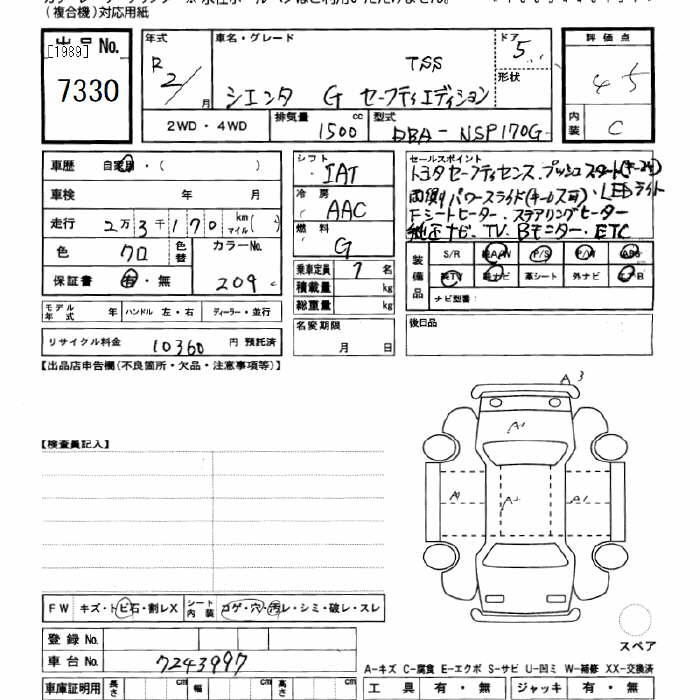 (複合機)対応用紙
出品No.
[1989]
7330
年式
R2/
月
車名・グレード
TSS
シエンタ G セーフティエディション
ドア
5
形状
評価点
4.5
内装
C
2WD・4WD
排気量
1500 cc
型式
DBA-NSP170G
車歴 自家用・( )
車検 年 月
走行 2万3千170 km マイル( )
色 クロ
色替
カラーNo.
209
保証書 有・無
シフト
IAT
冷房
AAC
燃料
G
乗車定員 7 名
積載量 kg
総重量 kg
名変期限
月 日
セールスポイント
トヨタセーフティセンス.プッシュスタート
両側パワースライド ・LEDライト
Fシートヒーター.ステアリングヒーター
純正ナビ.TV.Bモニター.ETC
装備品
S/R A/W P/S P/W ABS
純TV 純ナビ 革シート 外ナビ エアB
ナビ型番:
後日品
モデル年式 年 ハンドル 左・右 ディーラー・並行
リサイクル料金 10360 円 預託済
【出品店申告欄(不良箇所・欠品・注意事項等)】
【検査員記入】
A 3
A1
A A A1
FW キズ・トビ石・割レX シート内装 コゲ・穴・汚レ・シミ・破レ・スレ
登録No.
車台No. 7243997
スペア
A-キズ C-腐食 E-エクボ S-サビ U-凹ミ W-補修 XX-交換済
車庫証明用 長さ cm 幅 cm 高さ cm
工具 有・無 ジャッキ 有・無